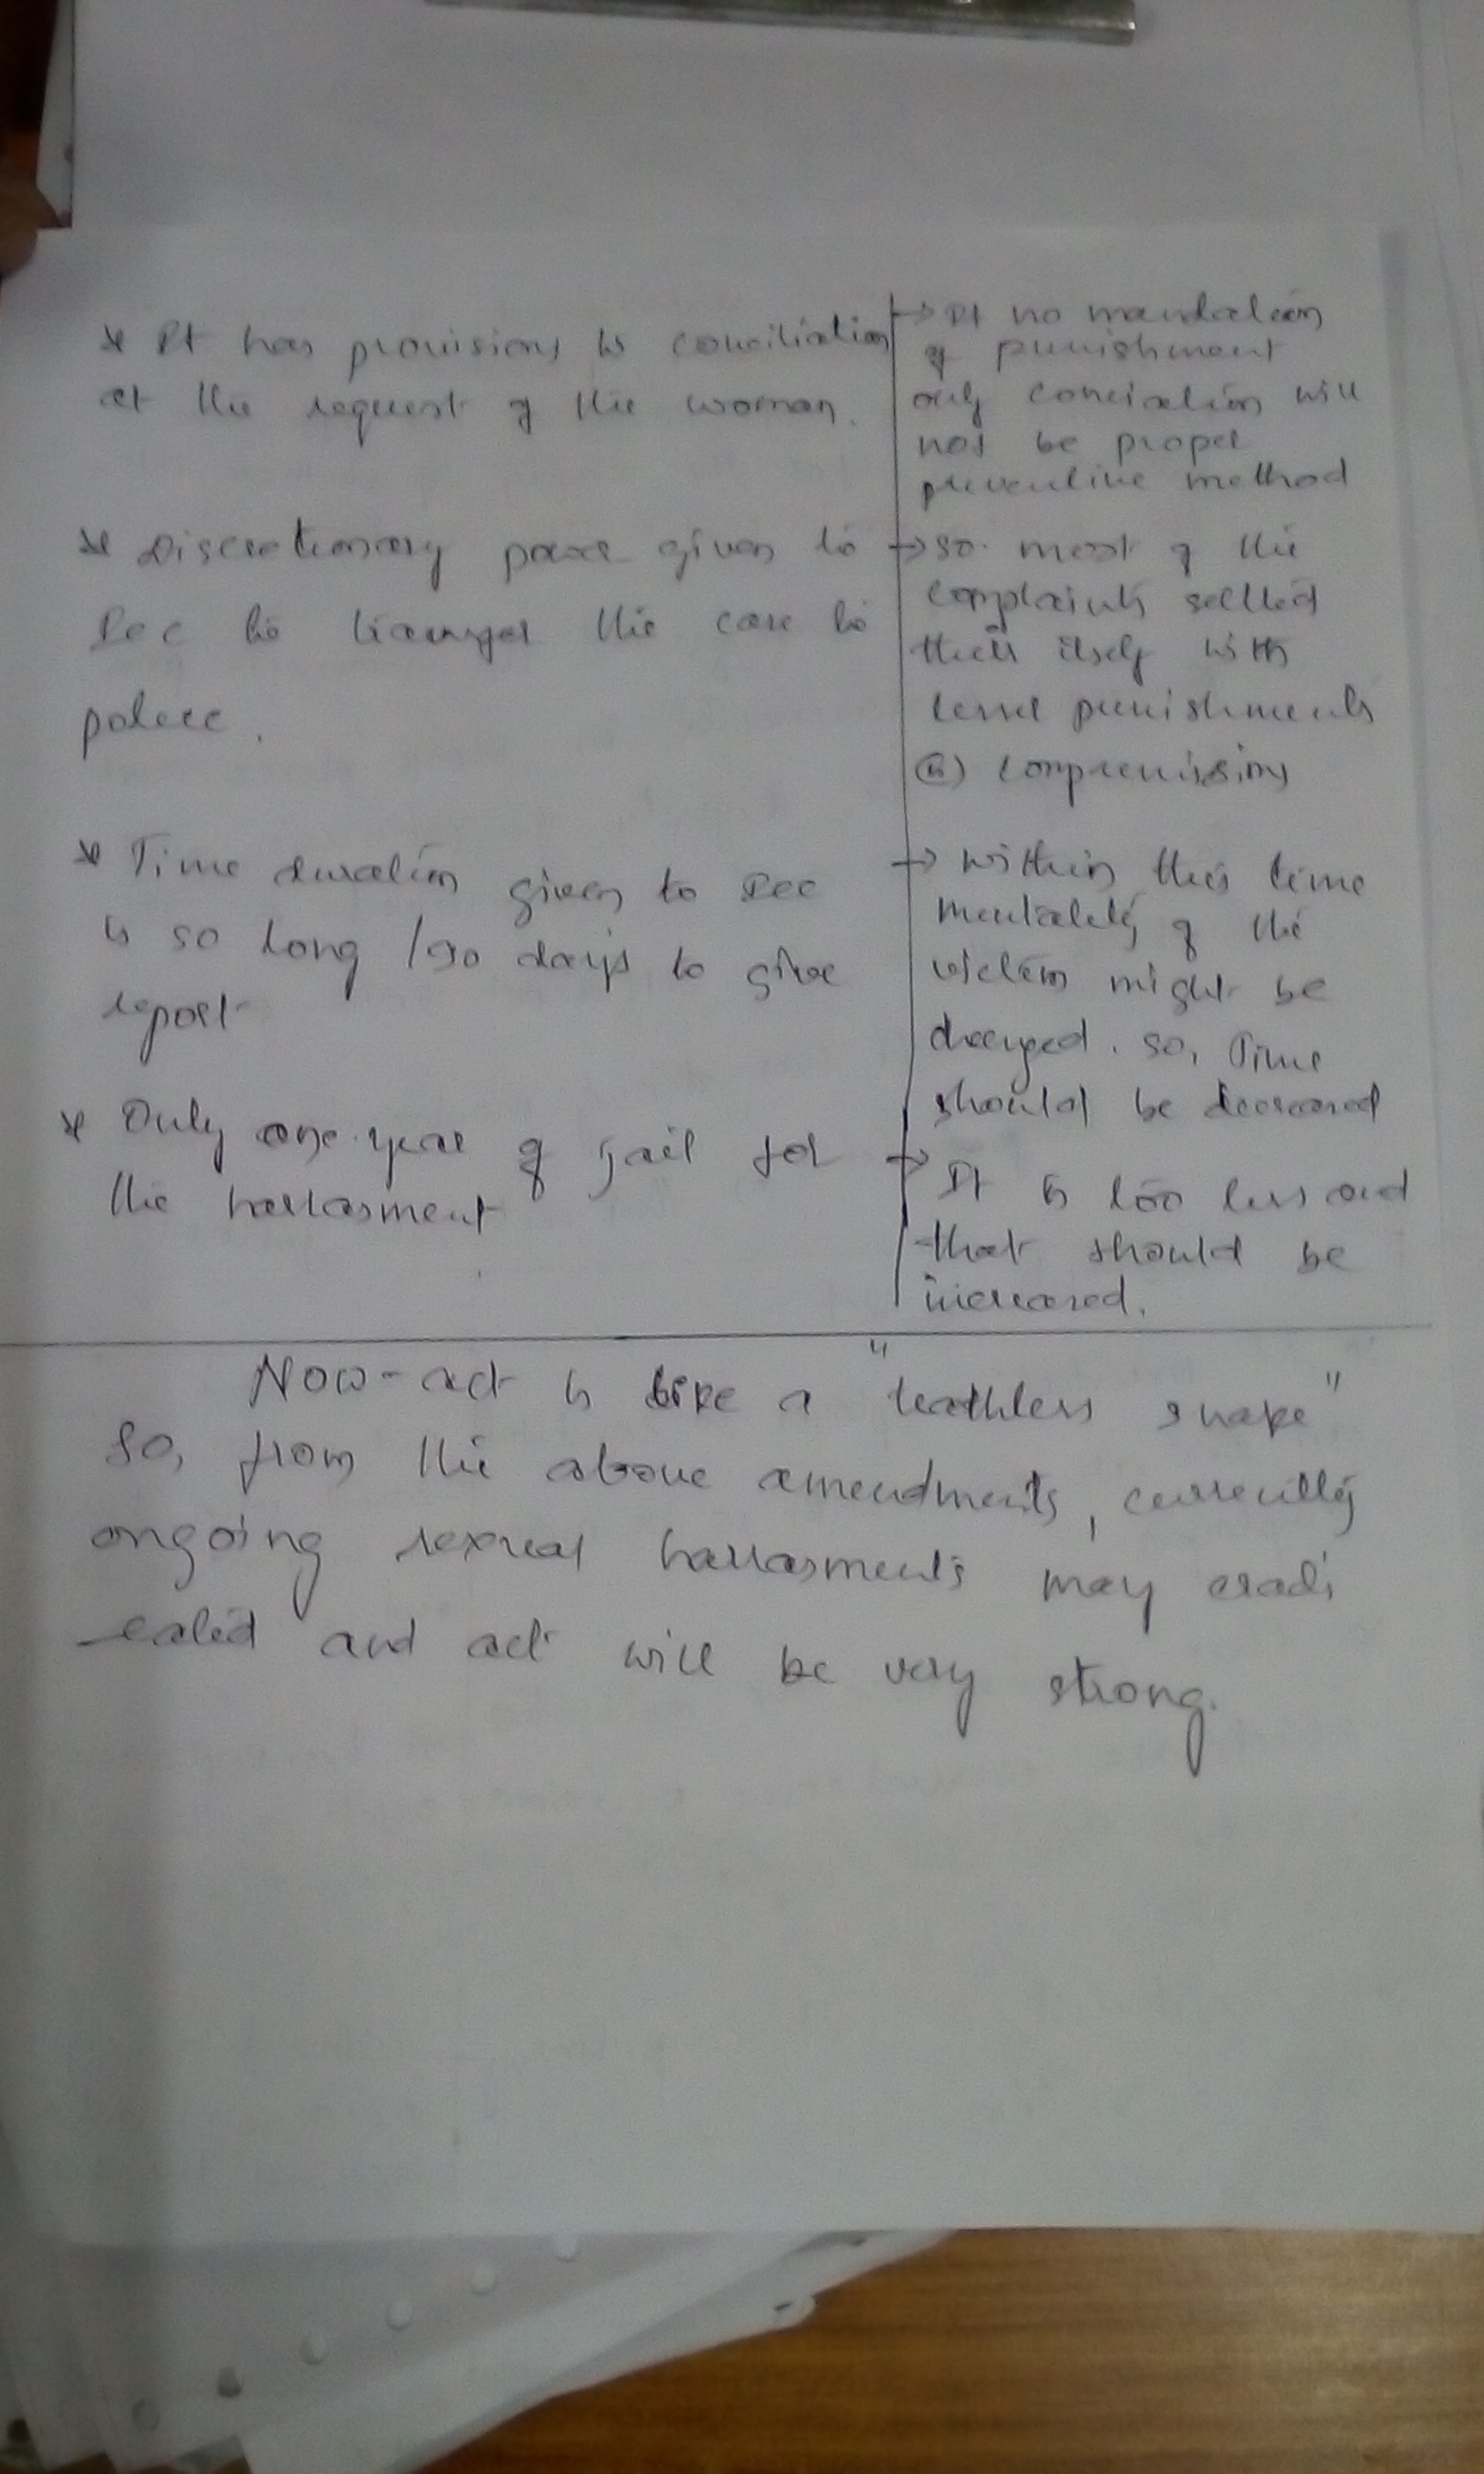 * It has provisions to conciliation
at the request of the woman.
→ It no mandation
of punishment
only conciation will
not be proper
preventive method
* Discretionary power given to
Icc to transfer the case to
police.
→ so. most of the
complaints settled
their itself with
lesser punishments
(or) compremissions
* Time duration given to Icc
is so long /90 days to give
report
→ within this time
mentality of the
victim might be
changed. so, Time
should be decreased
* Only one year of jail for
the harrasment
→ It is too less and
that should be
increased.
Now-act is like a "teathless snake"
So, from the above amendments, currently
ongoing sexual harrasments may eradi
cated and act will be very strong.